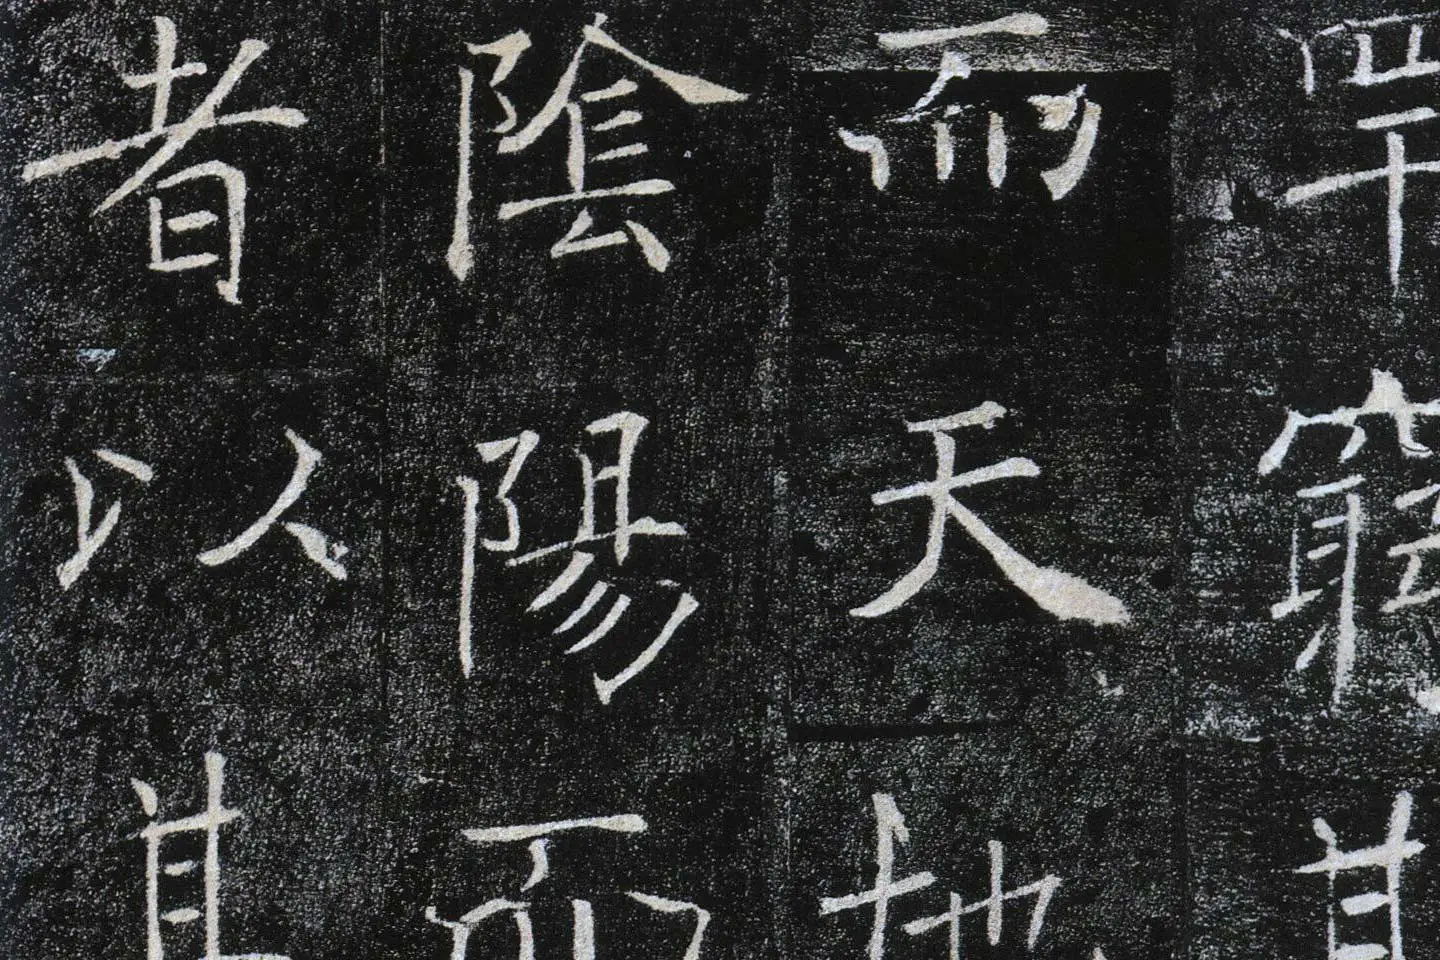 罕窮其
而天地
陰陽而
者以其